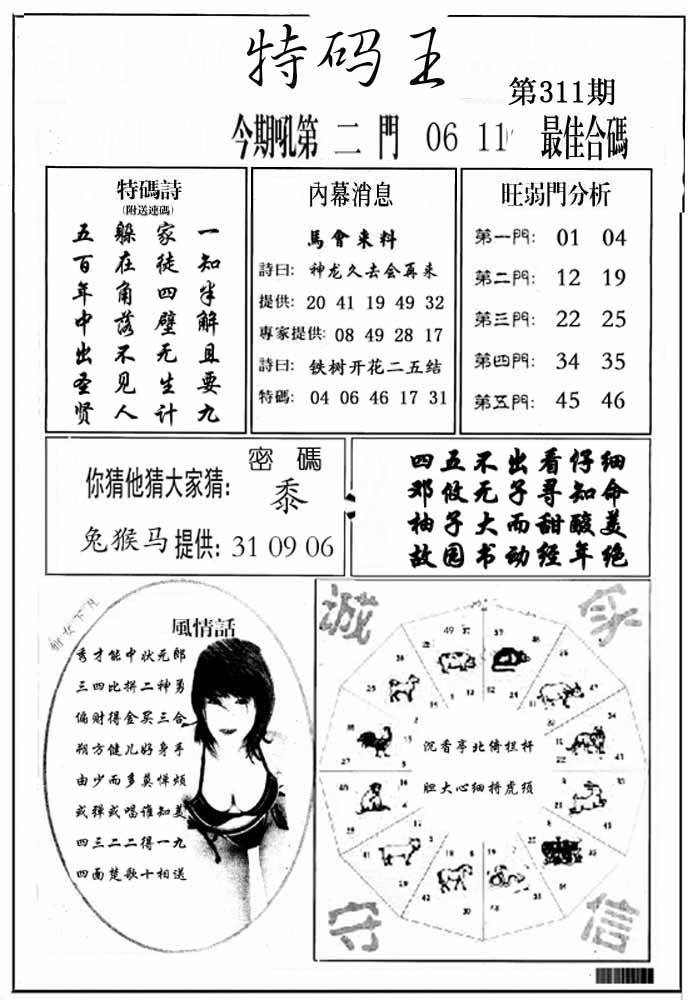 特码王
第311期
今期吼第二門 06 11 最佳合碼
特碼詩
(附送連碼)
一知半解且要九
家徒四壁无生计
躲在角落不见人
五百年中出圣贤
內幕消息
馬會来料
詩曰: 神龙久去会再来
提供: 20 41 19 49 32
專家提供: 08 49 28 17
詩曰: 铁树开花二五结
特碼: 04 06 46 17 31
旺弱門分析
第一門: 01 04
第二門: 12 19
第三門: 22 25
第四門: 34 35
第五門: 45 46
密碼
你猜他猜大家猜: 黍
兔猴马提供: 31 09 06
四五不出看仔细
邓攸无子寻知命
柚子大而甜酸美
故园书动经年绝
仙女下凡
風情話
秀才能中状元郎
三四比拼二神勇
偏财得金买三合
朔方健儿好身手
由少而多莫惮烦
或弹或唱谁知美
四三二二得一九
四面楚歌十相送
诚
家
沉香亭北倚栏杆
胆大心细捋虎须
守
信